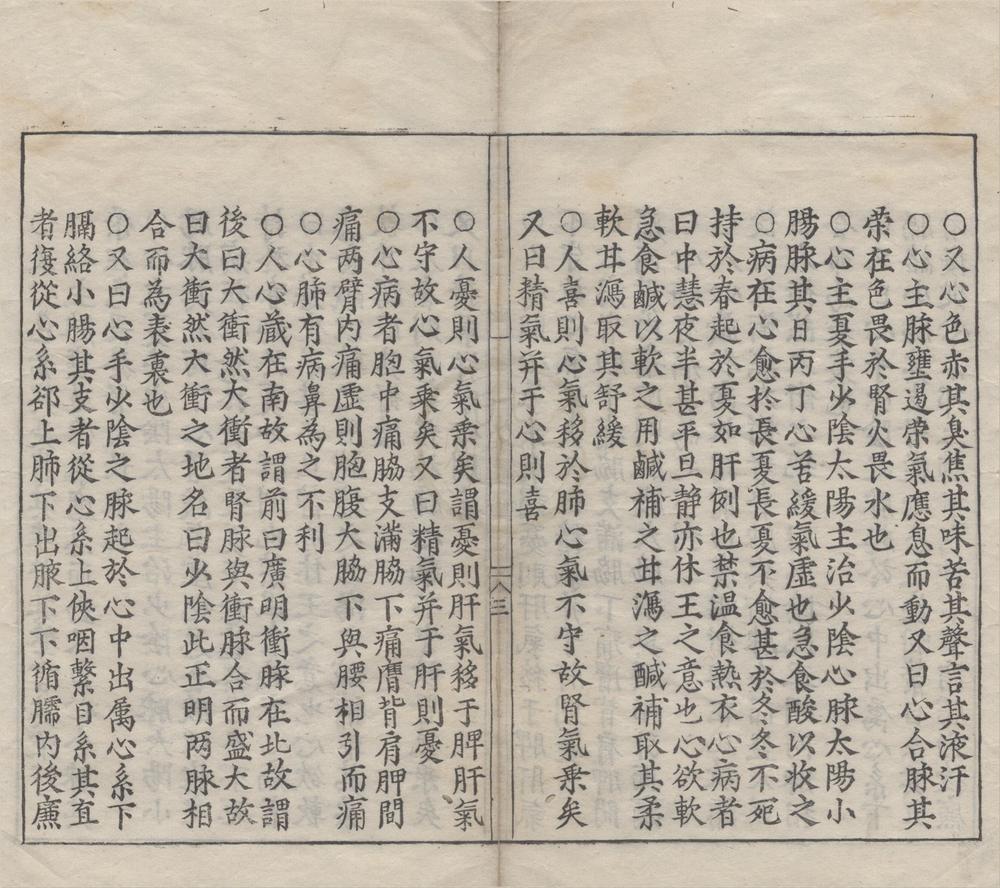 ○又心色赤其臭焦其味苦其聲言其液汗
○心主脉壅遏荣氣應息而動又曰心合脉其
荣在色畏於腎火畏水也
○心主夏手少陰太陽主治少陰心脉太陽小
腸脉其日丙丁心苦緩氣虛也急食酸以收之
○病在心愈於長夏長夏不愈甚於冬冬不死
持於春起於夏如肝例也禁温食熱衣心病者
日中慧夜半甚平旦静亦休王之意也心欲軟
急食鹹以軟之用鹹補之甘瀉之鹹補取其柔
軟甘瀉取其舒緩
○人喜則心氣移於肺心氣不守故腎氣乗矣
又曰精氣并于心則喜
○人憂則心氣乗矣謂憂則肝氣移于脾肝氣
不守故心氣乗矣又曰精氣并于肝則憂
○心病者胸中痛脇支滿脇下痛膺背肩胛間
痛两臂内痛虛則胸腹大脇下與腰相引而痛
○心肺有病鼻為之不利
○人心蔵在南故謂前曰廣明衝脉在北故謂
後曰大衝然大衝者腎脉與衝脉合而盛大故
曰大衝然大衝之地名曰少陰此正明两脉相
合而為表裏也
○又曰心手少陰之脉起於心中出属心系下
膈絡小腸其支者從心系上俠咽繫目系其直
者復從心系郤上肺下出腋下下循臑内後廉
三